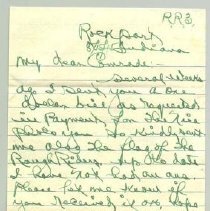 R.R.3.
Rock Port
Indiana
My Dear Comrade:-
Several Weeks
ago I sent you a One
Dollar bill as requested
in Payment for The
you so kindly sent
me also The flag of The
Rough Riders up to date
I have not had an ans.
Please let me know if
you received it or